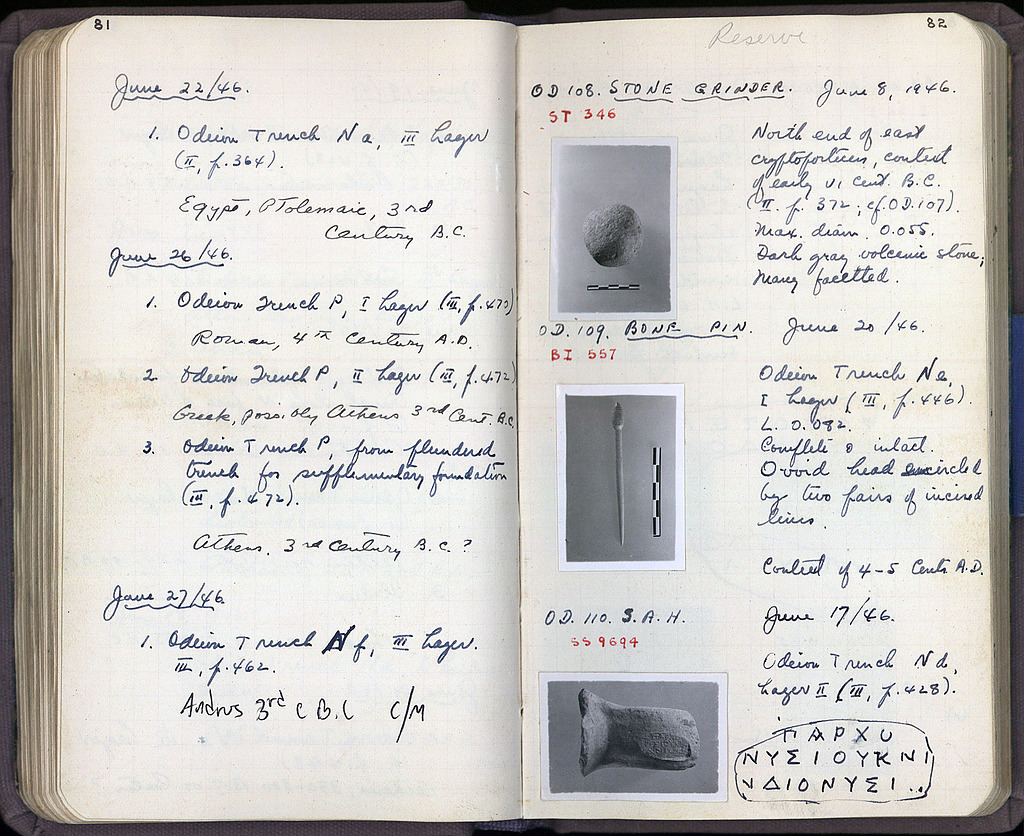 81
June 22/46.
1. Odeion Trench Na, III Layer
(II, p. 364).
Egypt, Ptolemaic, 3rd
Century B.C.
June 26/46.
1. Odeion Trench P, I Layer (III, p. 470)
Roman, 4th Century A.D.
2. Odeion Trench P, II Layer (III, p. 472)
Greek, possibly Athens 3rd Cent. B.C.
3. Odeion Trench P, from plundered
trench for supplementary foundation
(III, p. 472).
Athens. 3rd Century B.C.?
June 27/46
1. Odeion Trench Nf, III Layer.
III, p. 462.
Andros 3rd C B.C C/M
82
Reserve
OD 108. STONE GRINDER. June 8, 1946.
ST 346
North end of east
cryptoporticus, context
of early VI cent. B.C.
(II p. 372; cf. OD. 107).
Max. diam. 0.055.
Dark gray volcanic stone;
many facetted.
OD. 109. BONE PIN. June 20/46.
BI 557
Odeion Trench Ne,
I Layer (III, p. 446).
L. 0.082.
Complete & intact.
Ovoid head encircled
by two pairs of incised
lines.
Context of 4-5 Cents. A.D.
OD. 110. S.A.H. June 17/46.
SS 9694
Odeion Trench Nd,
Layer II (III, p. 428).
ΠΑΡΧΟ
ΝΥΣΙΟΥΚΝΙ
ΝΔΙΟΝΥΣΙ..